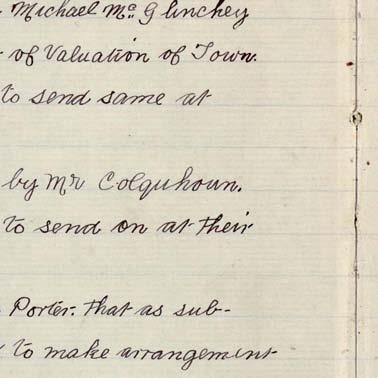 Michael Mc Glinchey
of Valuation of Town.
to send same at
by Mr Colquhoun.
to send on at their
Porter. that as sub-
to make arrangement